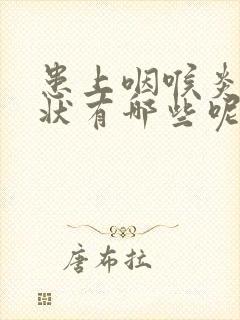 患上咽喉炎
状有哪些呢
唐布拉